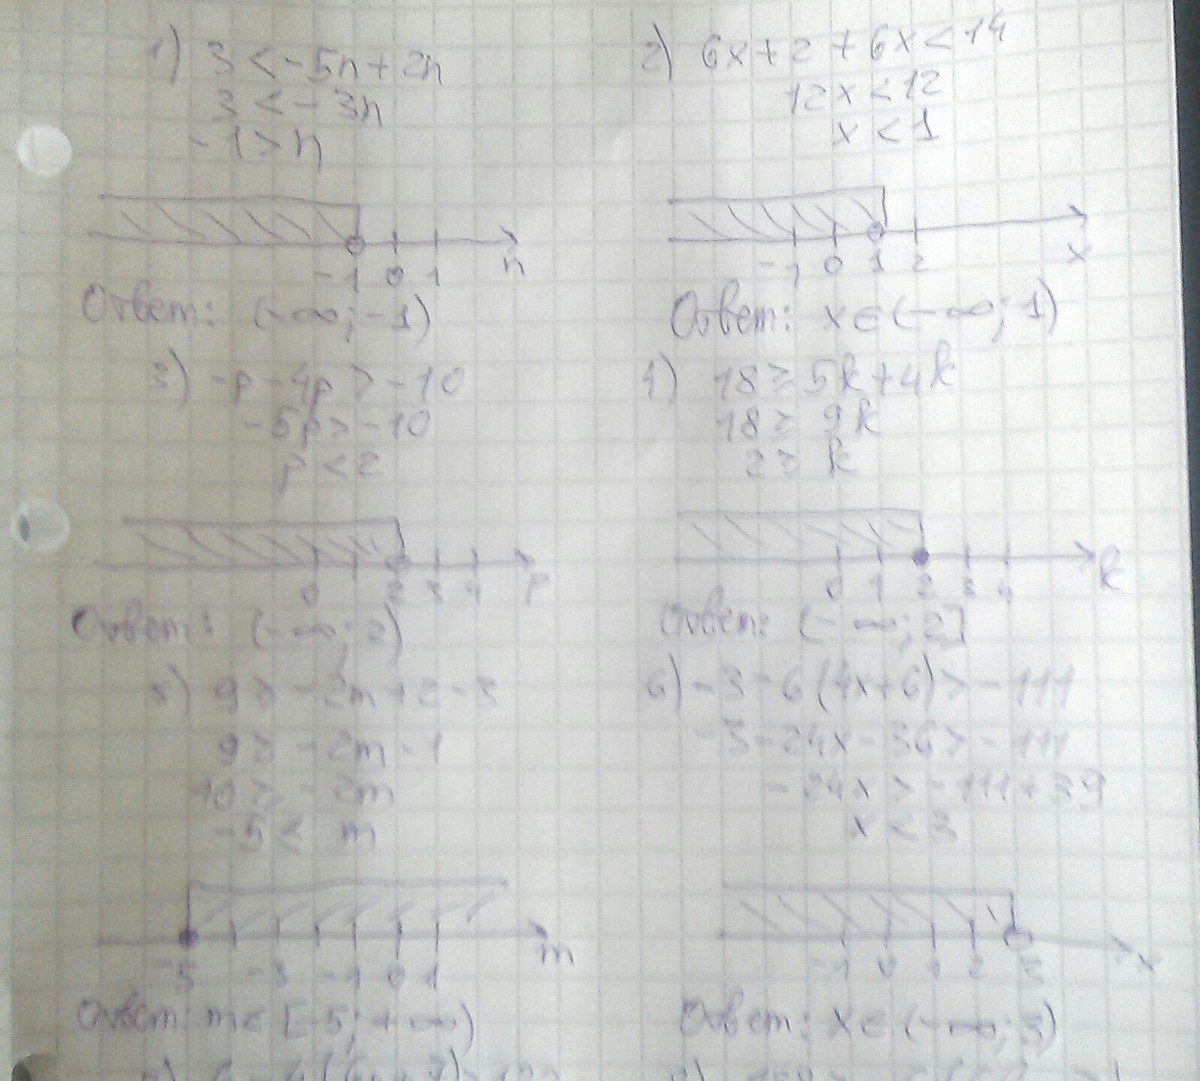 1) 3 < -5n + 2n
3 < -3n
-1 > n
-1 0 1 n
Ответ: (-∞; -1)
2) 6x + 2 + 6x < 14
12x < 12
x < 1
-1 0 1 2 x
Ответ: x ∈ (-∞; 1)
3) -p - 4p > -10
-5p > -10
p < 2
0 2 3 4 p
Ответ: (-∞; 2)
4) 18 ≥ 5k + 4k
18 ≥ 9k
2 ≥ k
0 1 2 3 4 k
Ответ: (-∞; 2]
5) 9 ≥ -2m + 2 - 3
9 ≥ -2m - 1
10 ≥ -2m
-5 ≤ m
-5 -3 -1 0 1 m
Ответ: m ∈ [-5; +∞)
6) -3 - 6(4x + 6) > -111
-3 - 24x - 36 > -111
-24x > -111 + 39
x < 3
-1 0 1 2 3 x
Ответ: x ∈ (-∞; 3)